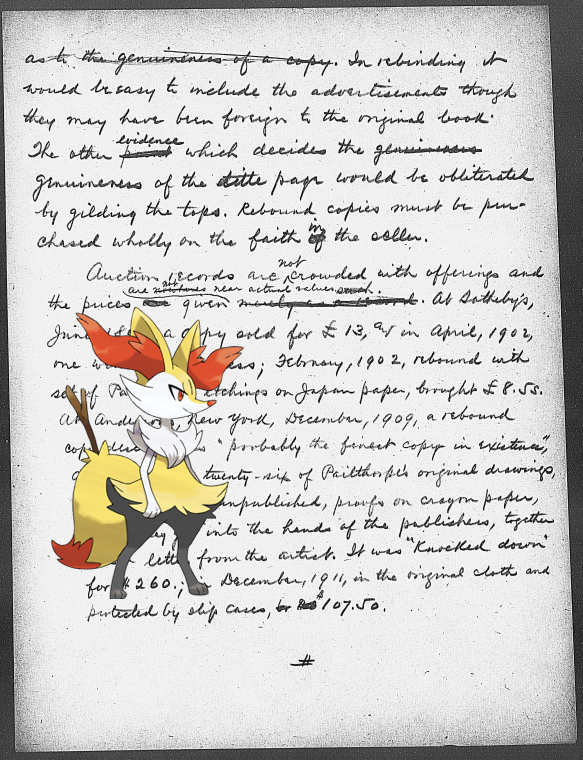 as to the genuineness of a copy. In rebinding it
would be easy to include the advertisements though
they may have been foreign to the original book.
evidence
The other which decides the genuineness
genuineness of the title page would be obliterated
by gilding the tops. Rebound copies must be pur-
chased wholly on the faith in the seller.
not
Auction records are crowded with offerings and
are not near actual values
the prices given merely as a record. At Sotheby's,
a copy sold for £13, and in April, 1902,
one February, 1902, rebound with
etchings on Japan paper, brought £8.5s.
At New York, December, 1909, a rebound
"probably the finest copy in existence",
twenty-six of Pailthorpe's original drawings,
unpublished, proofs on crayon paper,
into the hands of the publishers, together
letter from the artist. It was "Knocked down"
for $260.; December, 1911, in the original cloth and
protected by slip cases, $107.50.
#